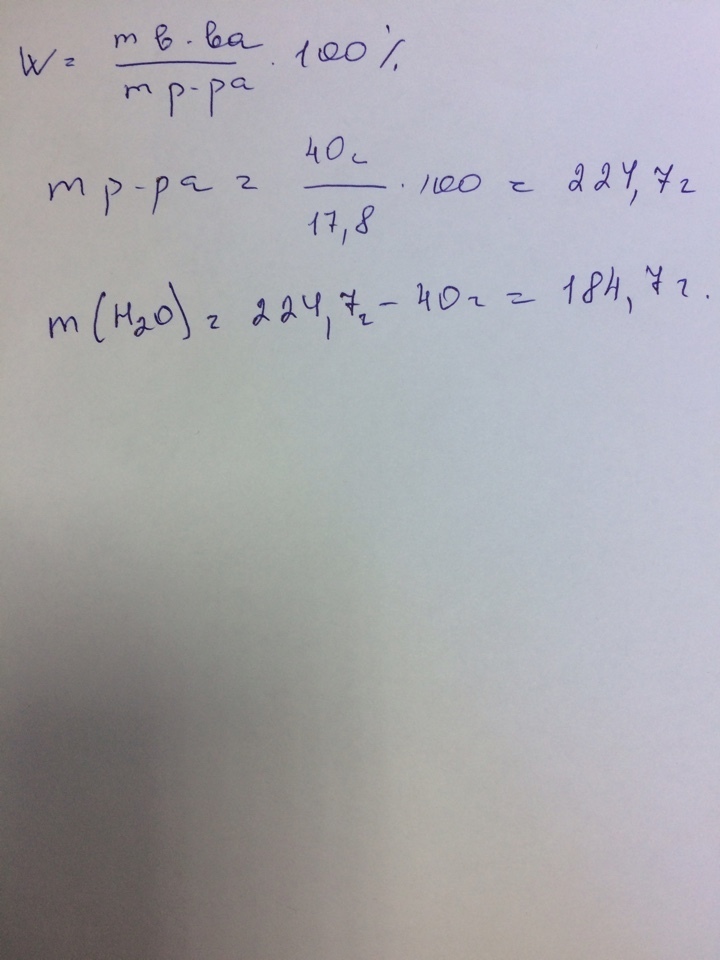 W = m в-ва / m р-ра · 100%
m р-ра = 40г / 17,8 · 100 = 224,7г
m(H₂O) = 224,7г - 40г = 184,7г.